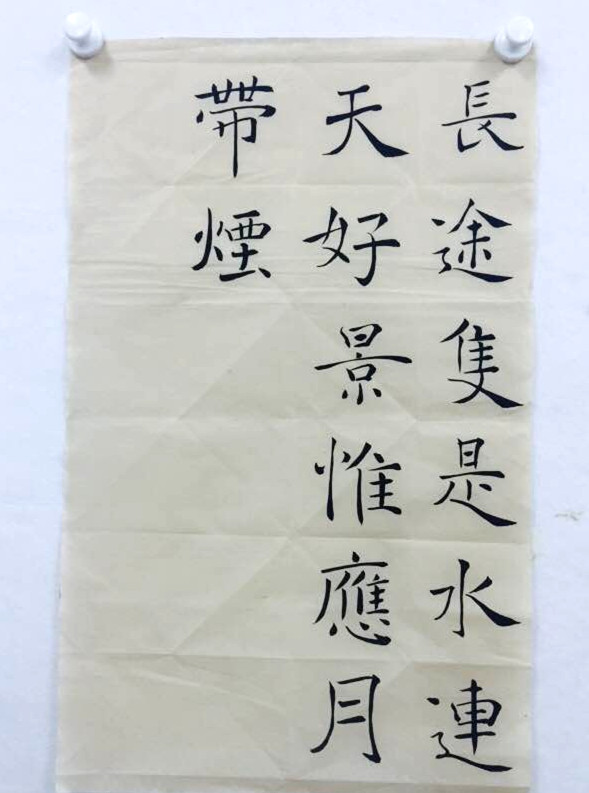 長途隻是水連
天好景惟應月
帶煙